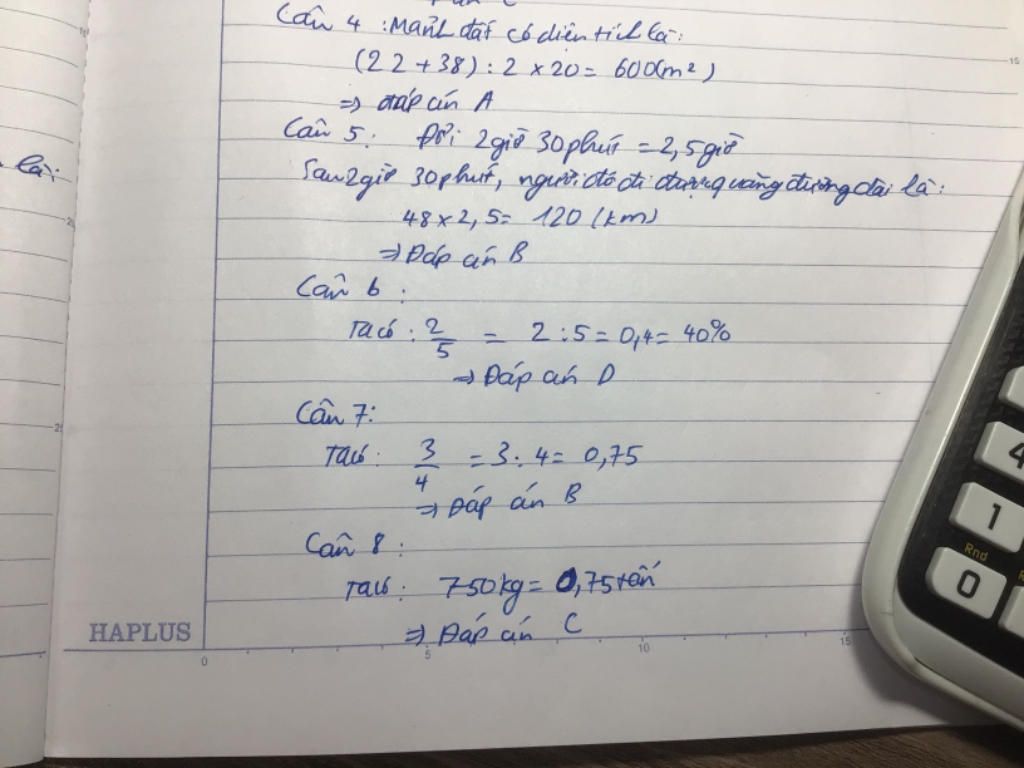 Câu 4 : Mảnh đất có diện tích là:
(22+38) : 2 × 20 = 600(m²)
⇒ đáp án A
Câu 5 : Đổi 2giờ 30phút = 2,5giờ
là:
Sau 2giờ 30phút, người đó đi được quãng đường dài là:
48 × 2,5 = 120 (km)
⇒ Đáp án B
Câu 6 :
Ta có : 2/5 = 2 : 5 = 0,4 = 40%
⇒ Đáp án D
Câu 7 :
Ta có : 3/4 = 3 : 4 = 0,75
⇒ Đáp án B
Câu 8 :
Ta có : 750kg = 0,75 tấn
⇒ Đáp án C
HAPLUS
0 5 10 15
4
1
Rnd
0